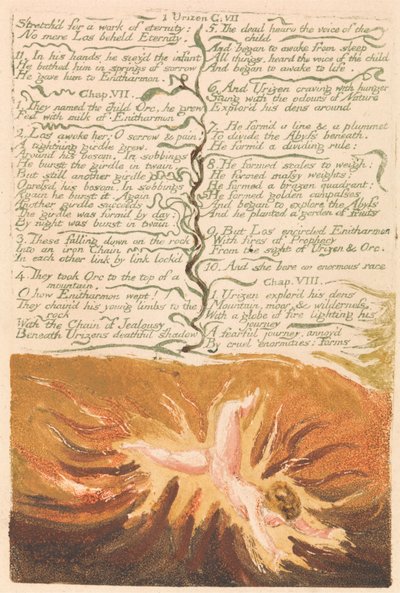 1 Urizen C. VII
Stretch'd for a work of eternity;
No more Los beheld Eternity.
11. In his hands he seiz'd the infant
He bathed him in springs of sorrow
He gave him to Enitharmon.
Chap. VII.
1. They named the child Orc, he grew
Fed with milk of Enitharmon
2. Los awoke her; O sorrow & pain!
A tight'ning girdle grew,
Around his bosom. In sobbings
He burst the girdle in twain,
But still another girdle
Opress'd his bosom. In sobbings
Again he burst it. Again
Another girdle succeeds
The girdle was form'd by day;
By night was burst in twain.
3. These falling down on the rock
Into an iron Chain
In each other link by link lock'd
4. They took Orc to the top of a
mountain.
O how Enitharmon wept!
They chain'd his young limbs to the
rock
With the Chain of Jealousy
Beneath Urizens deathful shadow
5. The dead heard the voice of the
child
And began to awake from sleep
All things. heard the voice of the child
And began to awake to life.
6. And Urizen craving with hunger
Stung with the odours of Nature
Explor'd his dens around
7. He form'd a line & a plummet
To divide the Abyss beneath.
He form'd a dividing rule:
8. He formed scales to weigh;
He formed massy weights;
He formed a brazen quadrant;
He formed golden compasses
And began to explore the Abyss
And he planted a garden of fruits
9. But Los encircled Enitharmon
With fires of Prophecy
From the sight of Urizen & Orc.
10. And she bore an enormous race
Chap. VIII.
1. Urizen explor'd his dens
Mountain, moor, & wilderness,
With a globe of fire lighting his
journey
A fearful journey, annoy'd
By cruel enormities: forms